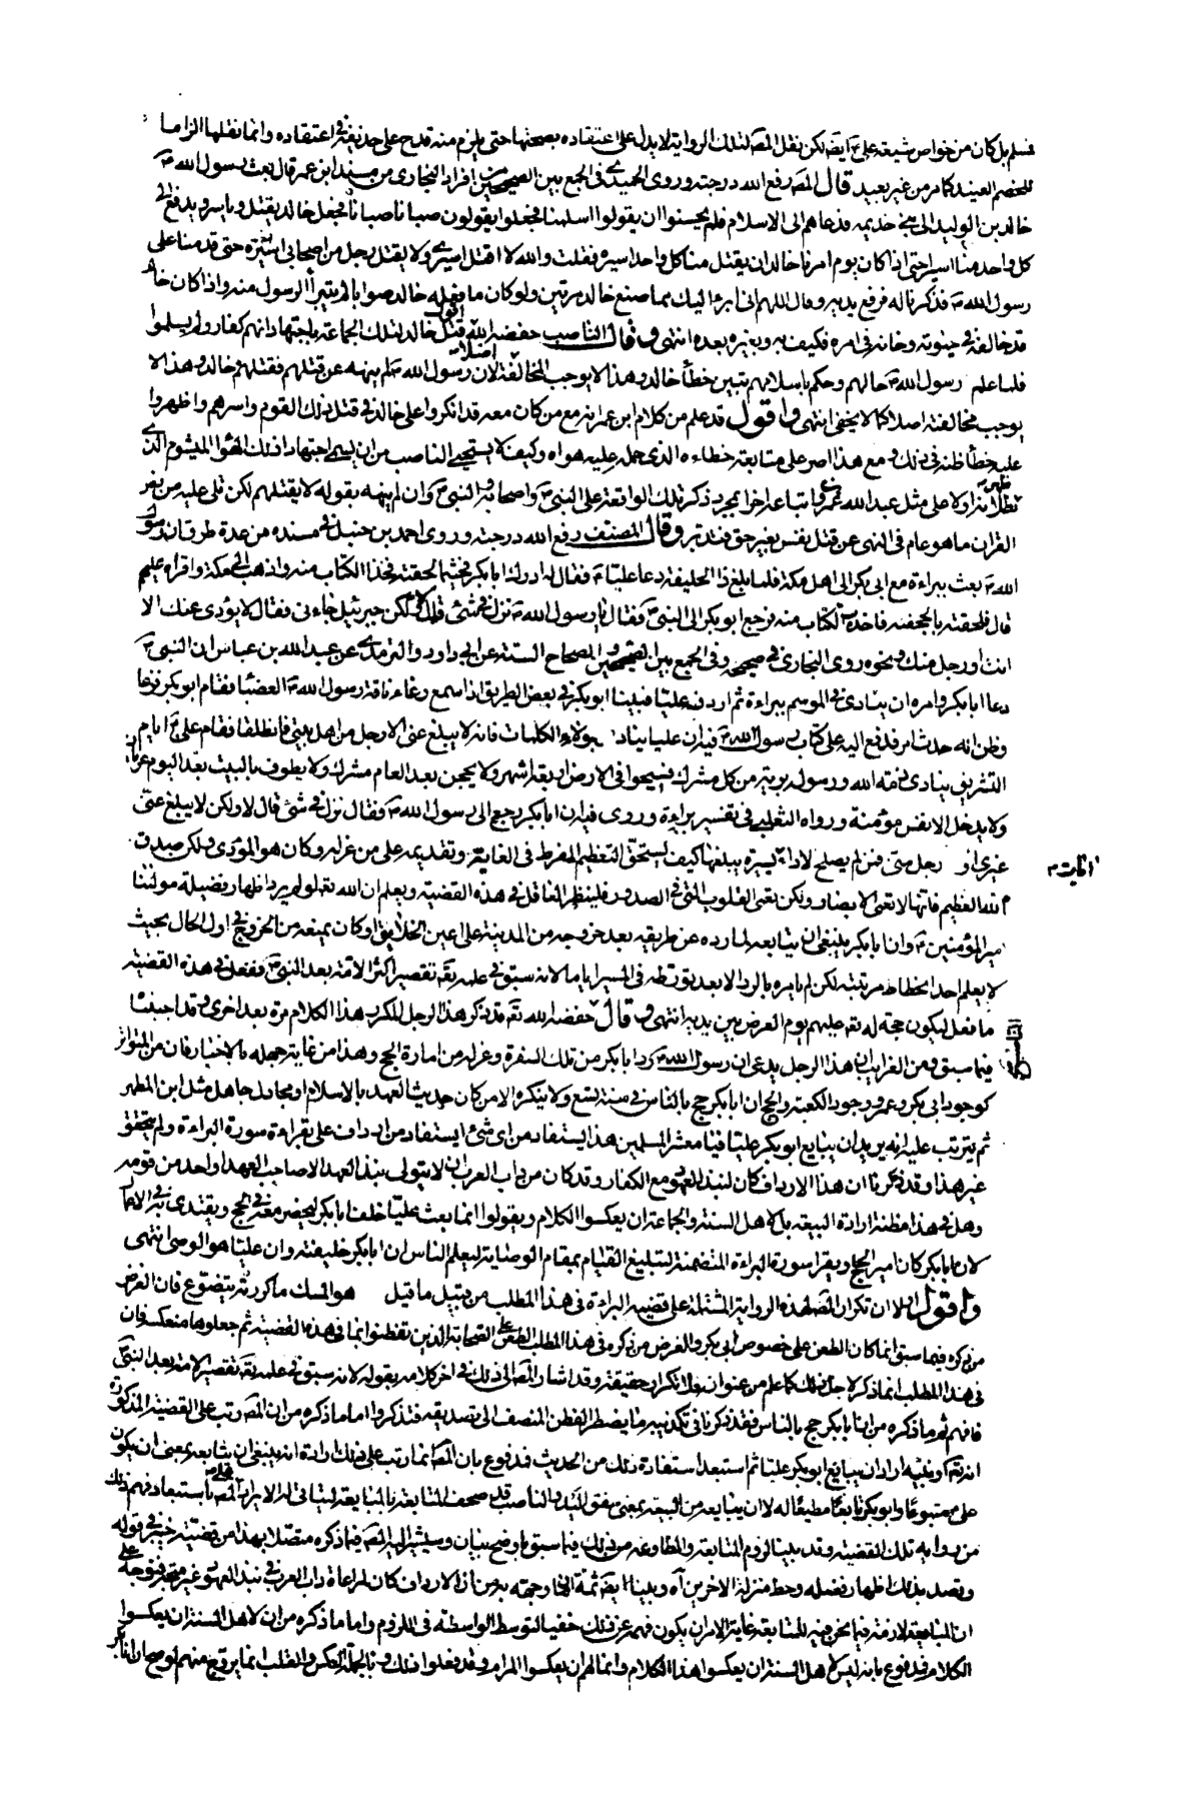 فسلم بل كان من خواص شيعة علي ع ايضا لكن نقل المص لتلك الرواية لا يدل على اعتقاده بصحتها حتى يلزم منه قدح على حذيفة في اعتقاده وانما نقلها الزاما
للخصم العنيد كما مر من غير بعيد قال المص رفع الله درجته وروى الحميدي في الجمع بين الصحيحين من افراد البخاري من مسند ابن عمر قال بعث رسول الله ص
خالد بن الوليد الى بني جذيمه فدعاهم الى الاسلام فلم يحسنوا ان يقولوا اسلمنا فجعلوا يقولون صبانا صبانا فجعل خالد يقتل وياسر ويدفع الى
كل واحد منا اسيره حتى اذا كان يوم امرنا خالد ان يقتل منا كل واحد اسيره فقلت والله لا اقتل اسيري ولا يقتل رجل من اصحابي اسيره حتى قدمنا على
رسول الله ص فذكرنا له فرفع يديه وقال اللهم اني ابرء اليك مما صنع خالد مرتين ولو كان ما فعله خالد صوابا لم يتبرأ الرسول منه واذا كان خالد
قد خالفه في حيوته وخانه في امره فكيف به وبغيره بعده انتهى وقال الناصب خفضه الله اقول قتل خالد لتلك الجماعة باجتهاد انهم كفار ولم يسلموا
فلما علم رسول الله ص حالهم وحكم باسلامهم تبين خطأ خالد وهذا لا يوجب المخالفة لان رسول الله ص لم ينهه عن قتلهم فقتلهم خالد وهذا لا
يوجب مخالفته اصلا كما لا يخفى انتهى واقول قد علم من كلام ابن عمر انه مع من كان معه قد انكروا على خالد في قتل ذلك القوم واسرهم واظهروا
عليه خطأ ظنه في ذلك ومع هذا اصر على متابعة خطاءه الذي حمله عليه هواه وكيف لا يستحيي الناصب من ان يسمي اجتهادا ذلك الهوى الميشوم الذي
ظهر بطلانه اولا على مثل عبد الله بن عمر واتباعه اخرا بمجرد ذكر تلك الواقعة على النبي ص واصحابه والنبي ص وان لم ينهه بقوله لا تقتلهم لكن تلى عليه من
القران ما هو عام في النهي عن قتل نفس بغير حق فتدبر وقال المصنف رفع الله درجته وروى احمد بن حنبل في مسنده من عدة طرق ان رسول
الله ص بعث ببراءة مع ابي بكر الى اهل مكة فلما بلغ ذا الحليفة دعا عليا ع فقال له ادرك ابا بكر فحيثما لحقته فخذ الكتاب منه واذهب الى مكة واقرأه عليهم
قال فلحقته بالجحفه فاخذت الكتاب منه فرجع ابو بكر الى النبي ص فقال يا رسول الله ص نزل في شيء قال لا ولكن جبرئيل جاءني فقال لا يؤدي عنك الا
انت او رجل منك ونحوه روى البخاري في صحيحه وفي الجمع بين الصحيحين والصحاح الستة عن ابي داود والترمذي عن عبد الله بن عباس ان النبي ص
دعا ابا بكر وامره ان ينادي في الموسم ببراءة ثم اردفه عليا فبينا ابو بكر في بعض الطريق اذ سمع رغاء ناقة رسول الله ص العضبا فقام ابو بكر فزعا
وظن انه حدث امر فدفع اليه علي كتاب رسول الله ص فيه ان عليا ينادي بهؤلاء الكلمات فانه لا يبلغ عني الا رجل من اهل بيتي فانطلقا فقام علي ع ايام
التشريق ينادي ذمة الله ورسوله برية من كل مشرك فسيحوا في الارض اربعة اشهر ولا يحجن بعد العام مشرك ولا يطوف بالبيت بعد اليوم عريان
ولا يدخل الا نفس مؤمنة ورواه الثعلبي في تفسير براءة وروى فيه ان ابا بكر رجع الى رسول الله ص فقال نزل في شيء قال لا ولكن لا يبلغ عني
غيري او رجل مني فمن لم يصلح لاداء ايات يسيرة يبلغها كيف يستحق التعظيم المفرط في الغاية وتقديمه على من عزله وكان هو المؤدي ولكن صدق
الله العظيم فانها لا تعمى الابصار ولكن تعمى القلوب التي في الصدور فلينظر العاقل في هذه القضية ويعلم ان الله تعالى لو لم يرد اظهار فضيلة مولانا
امير المؤمنين ع وان ابا بكر ينبغي ان يتابعه لما رده عن طريقه بعد خروجه من المدينة على اعين الخلائق او كان يمنعه من الخروج في اول الحال بحيث
لا يعلم احد انحطاط مرتبته لكن لم يامره بالرد الا بعد تورطه في المسير اياما لانه سبق في علمه تعالى تقصير اكثر الامة بعد النبي ص ففعل في هذه القضية
ما فعل ليكون حجة له تعالى عليهم يوم العرض بين يديه انتهى وقال خفضه الله تعالى قد ذكر هذا الرجل المكرر هذا الكلام مرة بعد اخرى وقد اجبنا
فيما سبق ومن الغرايب ان هذا الرجل يدعي ان رسول الله ص رد ابا بكر من تلك السفرة وعزله من امارة الحج وهذا من غاية جهله بالاخبار فان من المتواتر
كوجود ابي بكر وعمر ووجود الكعبة والحج ان ابا بكر حج بالناس في سنة تسع ولا ينكره الا من كان حديث العهد بالاسلام او مجادل جاهل مثل ابن المطهر
ثم يترتب عليه انه يريد ان يبايع ابو بكر عليا فيا معشر المسلمين هذا يستفاد من اي شيء ايستفاد من ارداف علي بقراءة سورة البراءة ولم يتحقق
غير هذا وقد ذكرنا ان هذا الارداف كان لنبذ العهود مع الكفار وقد كان من داب العرب ان لا يتولى نبذ العهد الا صاحب العهد او احد من قومه
وهل في هذا مظنة ارادة البيعة بل لاهل السنة والجماعة ان يعكسوا الكلام ويقولوا انما بعث عليا خلف ابا بكر ليحضر معه في الحج ويقتدي به
لان ابا بكر كان امير الحج ويقرا سورة البراءة المتضمنة لتبليغ القيام بمقام الوصاية ليعلم الناس ان ابا بكر خليفته وان عليا هو الوصي انتهى
واقول اولا ان تكرار المص لهذه الرواية المشتملة على قضية البراءة في هذا المطلب من قبيل ما قيل هو المسك ما كررته يتضوع فان الغرض
من ذكره فيما سبق انما كان الطعن على خصوص ابي بكر والغرض من ذكره في هذا المطلب الطعن على الصحابة الذين تفطنوا في هذه القضية ثم جعلوها منعكسة فان
في هذا المطلب انما ذكر لاجل ذلك كما علم من عنوان فلا تكرار حقيقة وقد اشار المص الى ذلك في اخر كلامه بقوله لانه سبق في علمه تعالى تقصير الامة بعد النبي ص
فافهم ثم ما ذكره من ان ابا بكر حج بالناس فقد ذكرنا في تكذيبه ما يضطر الفطن المنصف الى تصديقه فتذكر واما ما ذكره من ان المص رتب على القضية المذكورة
انه اراد ان يبايع ابو بكر عليا ثم استبعد استفادة ذلك من الحديث فمدفوع بان المص انما رتب على ذلك ارادة انه ينبغي ان يتابعه بمعنى ان يكون
علي متبوعا وابو بكر تابعا مطيعا له لا ان يبايعه من البيعة بمعنى صفق اليد والناصب قد صحف المتابعة بالمبايعة
من هذه القضية وقد بينا لزوم المتابعة والطاوعه من ذلك فيما سبق باوضح بيان وسيشير اليه المص فيما ذكره متصلا بهذا من قضية خيبر في قوله
وقصد بذلك اظهار فضله وحط منزلة الاخرين آه وبينا ايضا ثمة انه لا وجه لان هذا الارداف كان لمراعاة داب العرب في نبذ العهود
ان المتابعة لازمة فيما نحن فيه للمتابعة غاية الامر ان يكون فهمه عن ذلك خفيا لتوسط الواسطة في اللزوم واما ما ذكره من ان لاهل السنة ان يعكسوا
الكلام فمدفوع بانه ليس لاهل السنة ان يعكسوا هذا الكلام وانما لهم ان يعكسوا المرام وقد فعلوا ذلك وبالجملة العكس والقلب انما
ايات ص